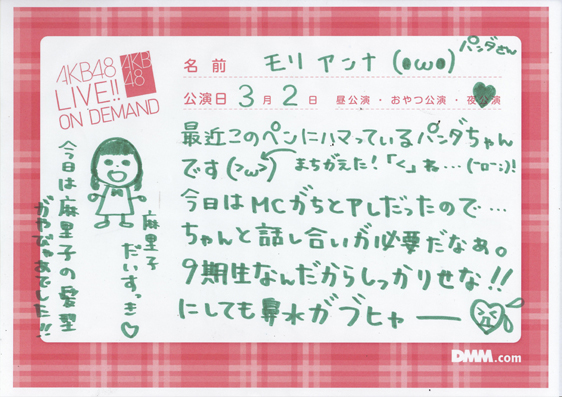 AKB48
LIVE!!
ON DEMAND
AKB
48
名前 モリアンナ (●ω●)
パンダさん
公演日 3月2日 昼公演・おやつ公演・夜公演
最近このペンにハマっているパンダちゃん
です(>ω>) まちがえた!「<」ね…(ーoー;)!
今日はMCがちとアレだったので…
ちゃんと話し合いが必要だなぁ。
9期生なんだからしっかりせな!!
にしても鼻水がブヒャー
麻里子
だいすっき♡
今日は麻里子の髪型
がやびゃあでした!!
DMM.com